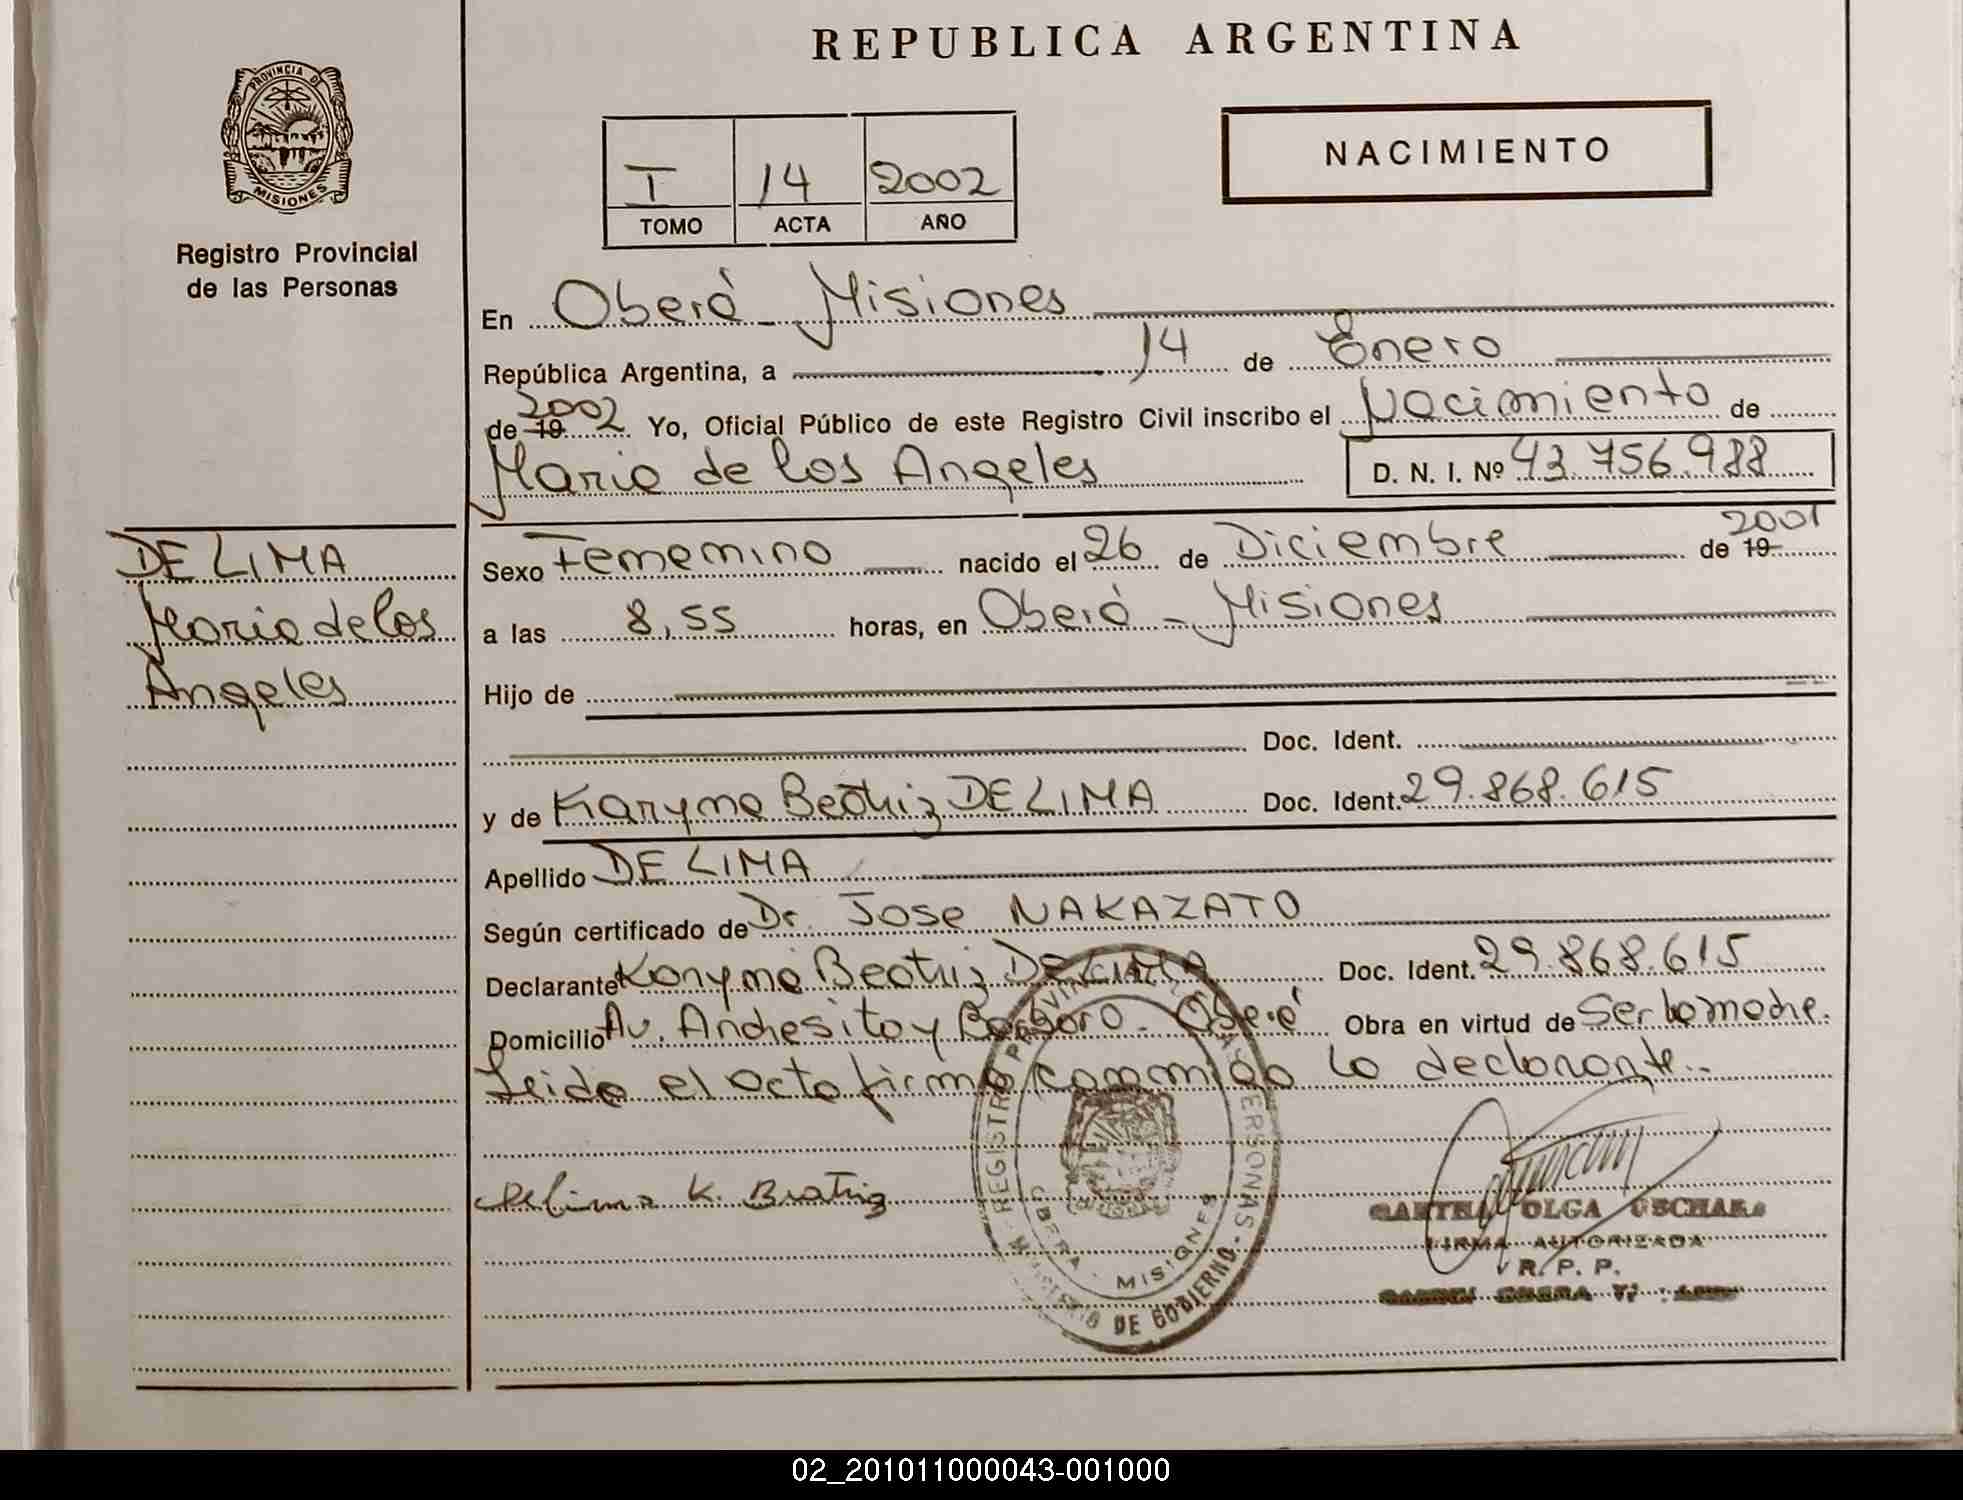 REPUBLICA ARGENTINA
PROVINCIA DE
MISIONES
Registro Provincial
de las Personas
I 14 2002
TOMO ACTA AÑO
NACIMIENTO
En Oberá - Misiones
República Argentina, a 14 de Enero
de 19 2002 Yo, Oficial Público de este Registro Civil inscribo el Nacimiento de
Maria de los Angeles D. N. I. Nº 43.756.988
DE LIMA
Maria de los
Angeles
Sexo Femenino nacido el 26 de Diciembre de 19 2001
a las 8,55 horas, en Oberá - Misiones
Hijo de
Doc. Ident.
y de Karyma Beatriz DE LIMA Doc. Ident. 29.868.615
Apellido DE LIMA
Según certificado de Dr. Jose NAKAZATO
Declarante Karyma Beatriz DE LIMA Doc. Ident. 29.868.615
Domicilio Av. Andresito y Barboro - Oberá Obra en virtud de Ser la madre.
Leida el acta firma conmigo la declarante.
De Lima K. Beatriz
REGISTRO PROVINCIAL DE LAS PERSONAS - MINISTERIO DE GOBIERNO -
OBERA - MISIONES
OLGA
FIRMA AUTORIZADA
R. P. P.
02_201011000043-001000